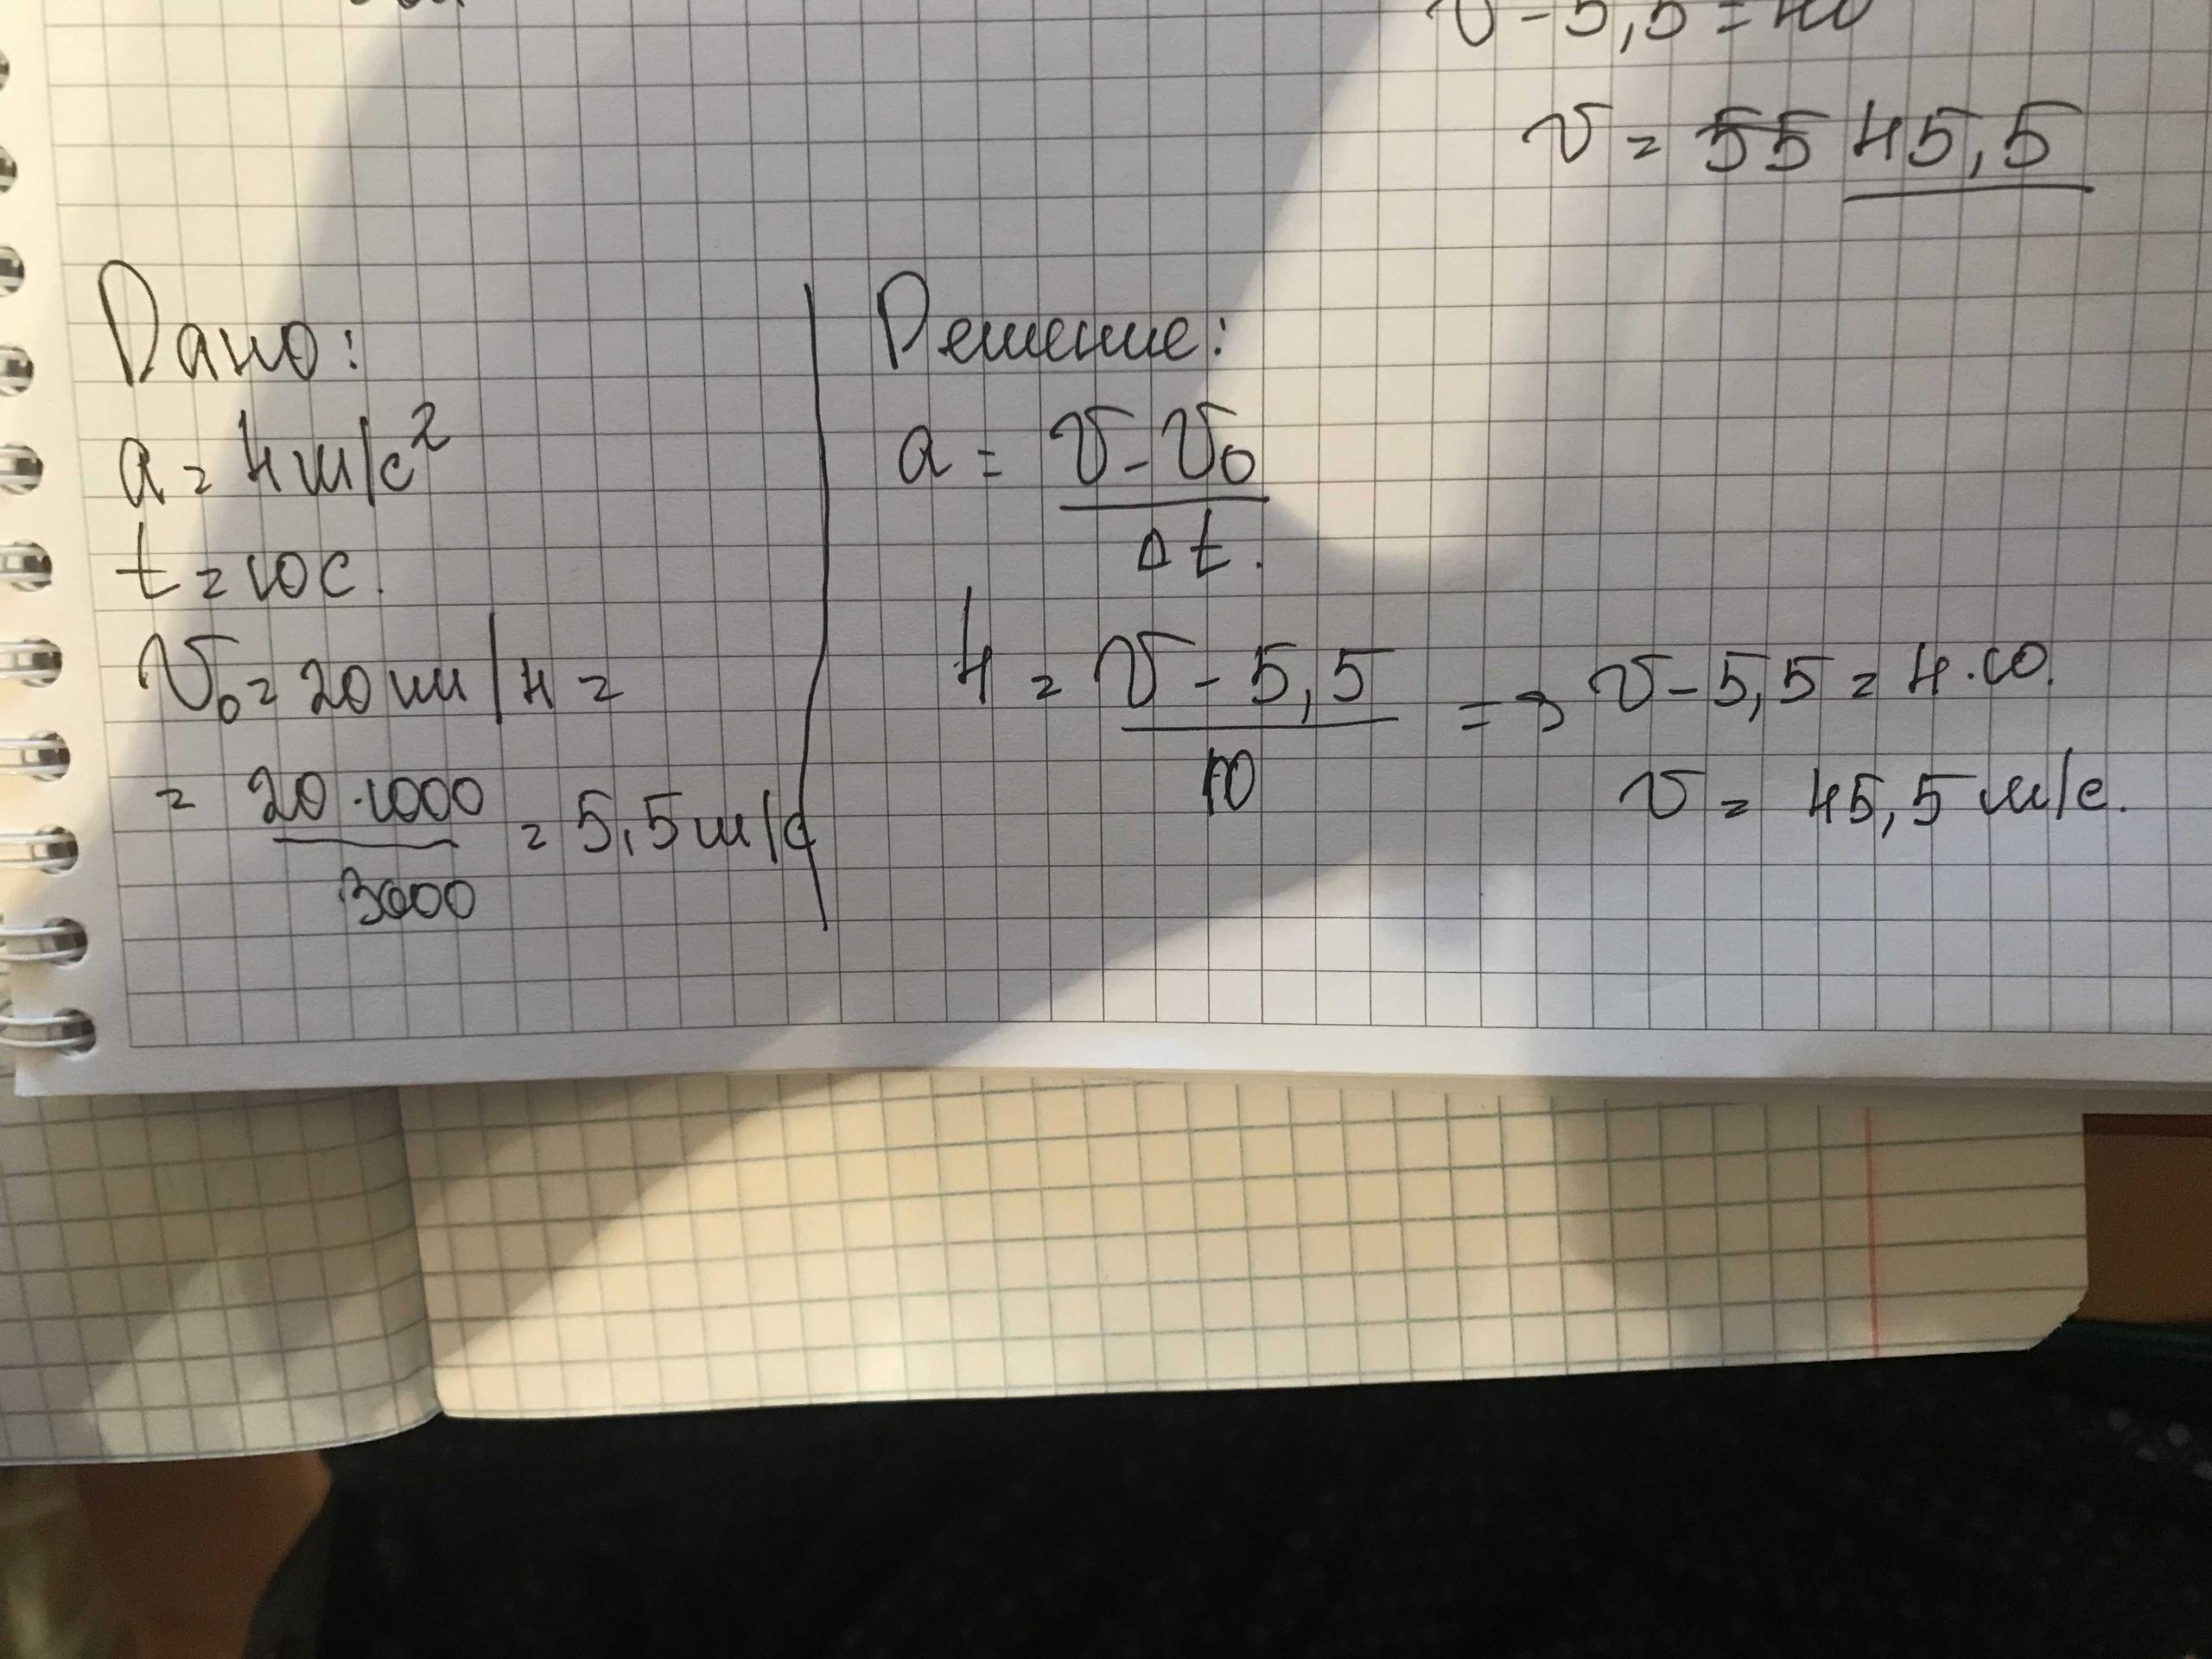 v - 5,5 = 40
v = 55 45,5
Дано:
a = 4 м/с²
t = 10 с.
v₀ = 20 км/ч =
= 20·1000 / 3600 = 5,5 м/с
Решение:
a = v - v₀ / Δt.
4 = v - 5,5 / 10 => v - 5,5 = 4·10.
v = 45,5 м/с.